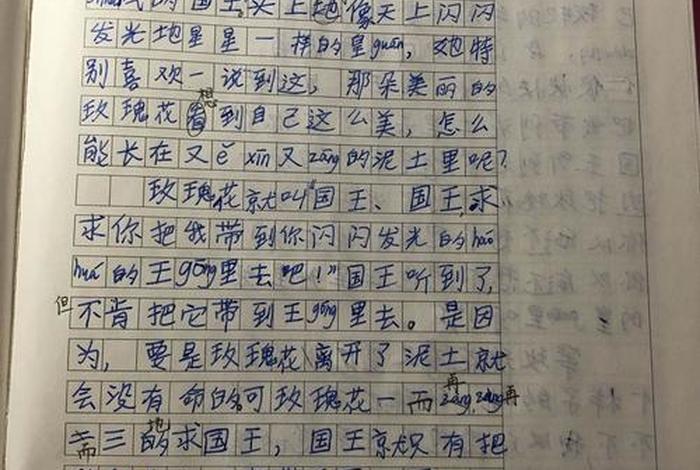 的国王头上地像天上闪闪
发光地星星一样的皇guān，她特
别喜欢一说到这，那朵美丽的
玫瑰花想到自己这么美，怎么
能长在又ě xīn又zāng的泥土里呢？
玫瑰花京尤叫国王、国王，求
求你把我带到你闪闪发光的háo
huá的王gōng里去吧！"国王听到了，
但不肯把它带到王gōng里去。是因
为，要是玫瑰花离开了泥土就
会没有命的可玫瑰花一而再
再而三地求国王，国王京尤只有把